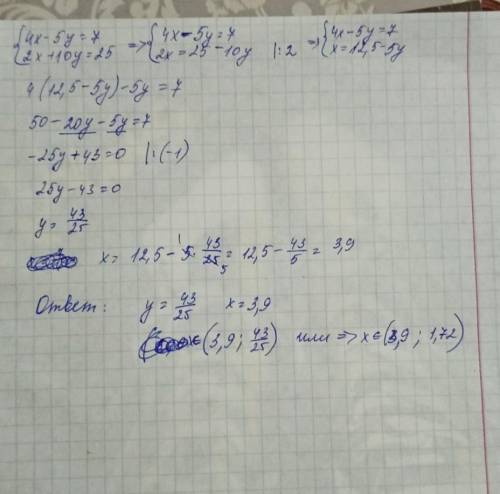 {4x-5y=7 => {4x-5y=7 => {4x-5y=7
{2x+10y=25 {2x=25-10y |:2 {x=12,5-5y
4(12,5-5y)-5y=7
50-20y-5y=7
-25y+43=0 |:(-1)
25y-43=0
y=43/25
x=12,5-5·43/25=12,5-43/5=3,9
Ответ: y=43/25 x=3,9
(3,9; 43/25) или => x∈(3,9; 1,72)